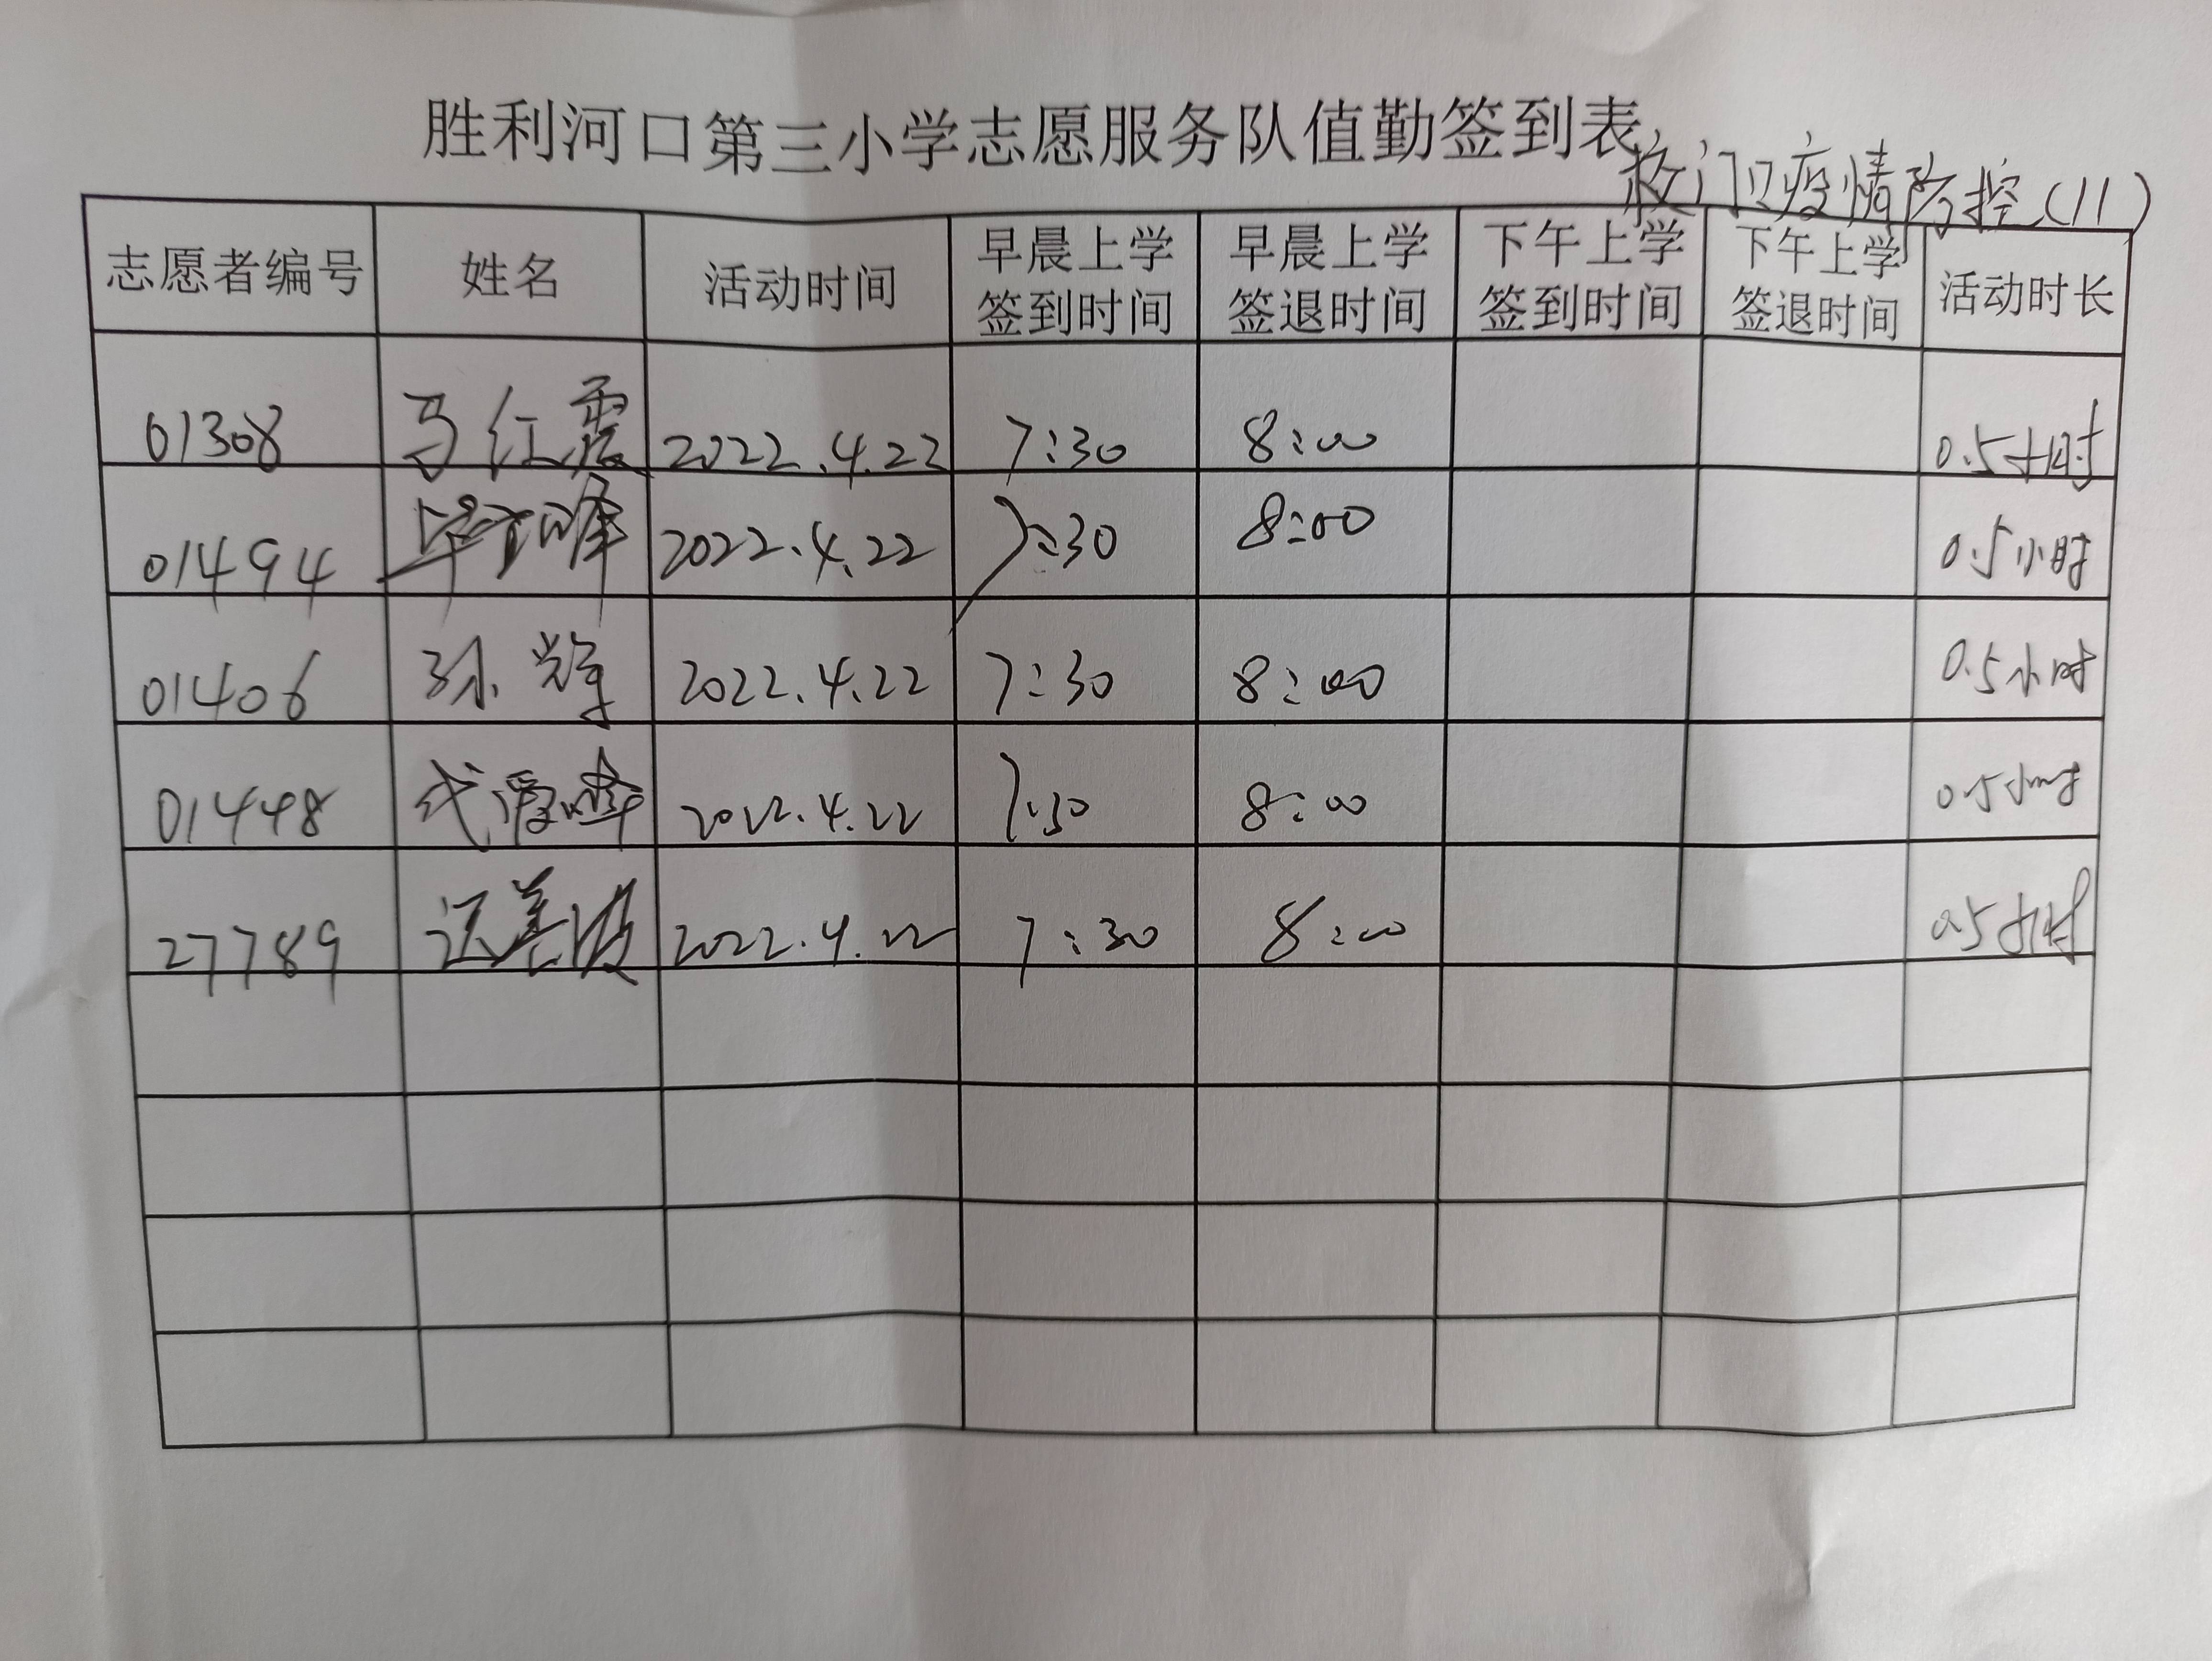 胜利河口第三小学志愿服务队值勤签到表
校门口疫情防控(11)
志愿者编号 姓名 活动时间 早晨上学签到时间 早晨上学签退时间 下午上学签到时间 下午上学签退时间 活动时长
01308 马红震 2022.4.22 7:30 8:00 0.5小时
01494 2022.4.22 7:30 8:00 0.5小时
01406 孙辉 2022.4.22 7:30 8:00 0.5小时
01448 2022.4.22 7:30 8:00 0.5小时
27789 2022.4.22 7:30 8:00 0.5小时